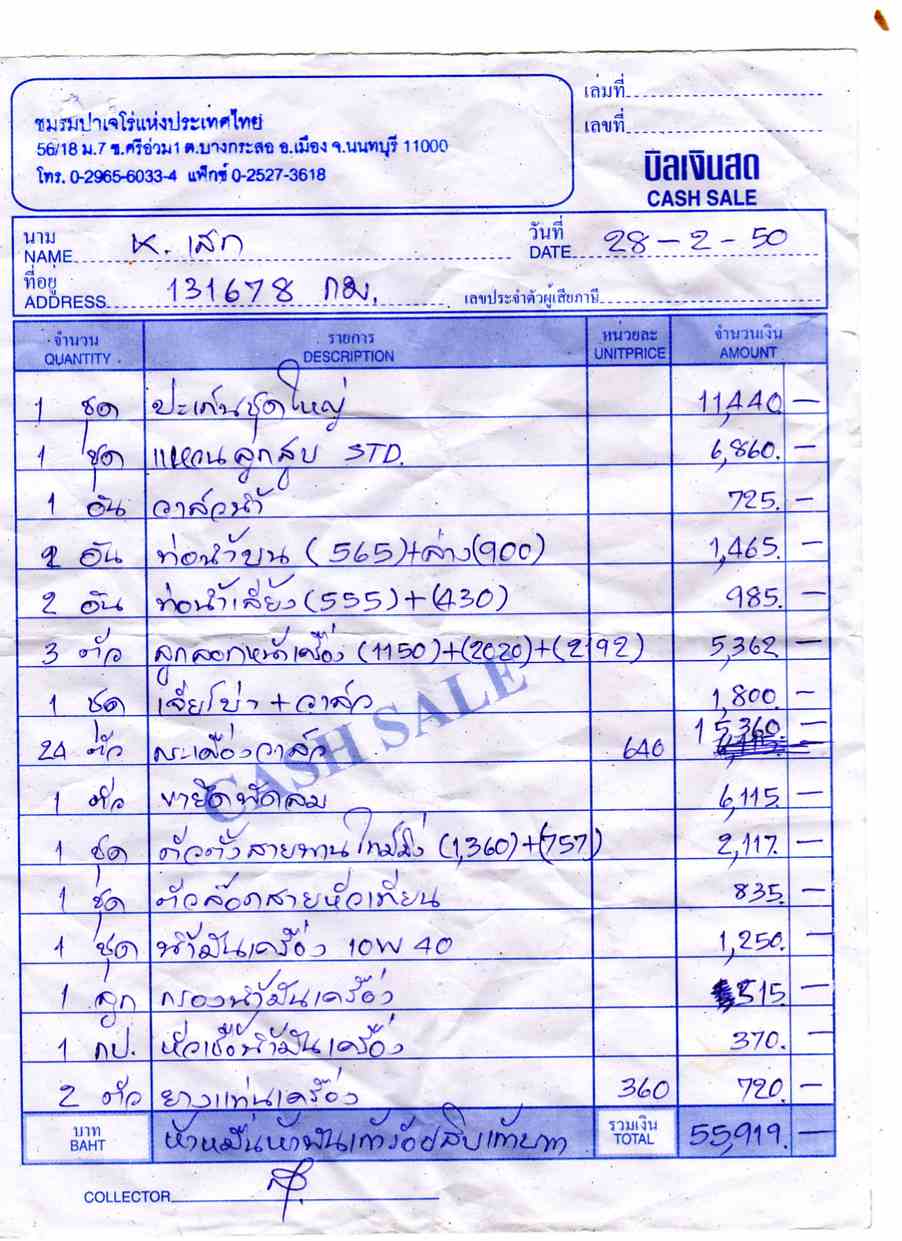 ชมรมปาเจโร่แห่งประเทศไทย
56/18 ม.7 ซ.ศรีอ่วม1 ต.บางกระสอ อ.เมือง จ.นนทบุรี 11000
โทร. 0-2965-6033-4 แฟ็กซ์ 0-2527-3618
เล่มที่
เลขที่
บิลเงินสด
CASH SALE
นาม
NAME ค. เสก
วันที่
DATE 28-2-50
ที่อยู่
ADDRESS 131678 กม.
เลขประจำตัวผู้เสียภาษี
จำนวน รายการ หน่วยละ จำนวนเงิน
QUANTITY DESCRIPTION UNITPRICE AMOUNT
1 ชุด ปะเก็นชุดใหญ่ 11,440 -
1 ชุด แหวนลูกสูบ STD. 6,860. -
1 อัน วาล์วน้ำ 725. -
2 อัน ท่อน้ำบน (565)+ล่าง(900) 1,465. -
2 อัน ท่อน้ำเลี้ยง(555)+(430) 985. -
3 ตัว ลูกลอกหน้าเครื่อง (1150)+(2020)+(2192) 5,362 -
1 ชุด เจียร์บ่า + วาล์ว 1,800. -
24 ตัว กระเดื่องวาล์ว 640 15,360. -
1 ตัว ขายึดพัดลม 6,115 -
1 ชุด ตัวตั้งสายพานไทม์มิ่ง (1,360)+(757) 2,117. -
1 ชุด ตัวล๊อคสายหัวเทียน 835. -
1 ชุด น้ำมันเครื่อง 10W 40 1,250. -
1 ลูก กรองน้ำมันเครื่อง 515 -
1 กป. หัวเชื้อน้ำมันเครื่อง 370. -
2 ตัว ยางแท่นเครื่อง 360 720. -
บาท ห้าหมื่นห้าพันเก้าร้อยสิบเก้าบาท รวมเงิน 55,919. -
BAHT TOTAL
CASH SALE
COLLECTOR